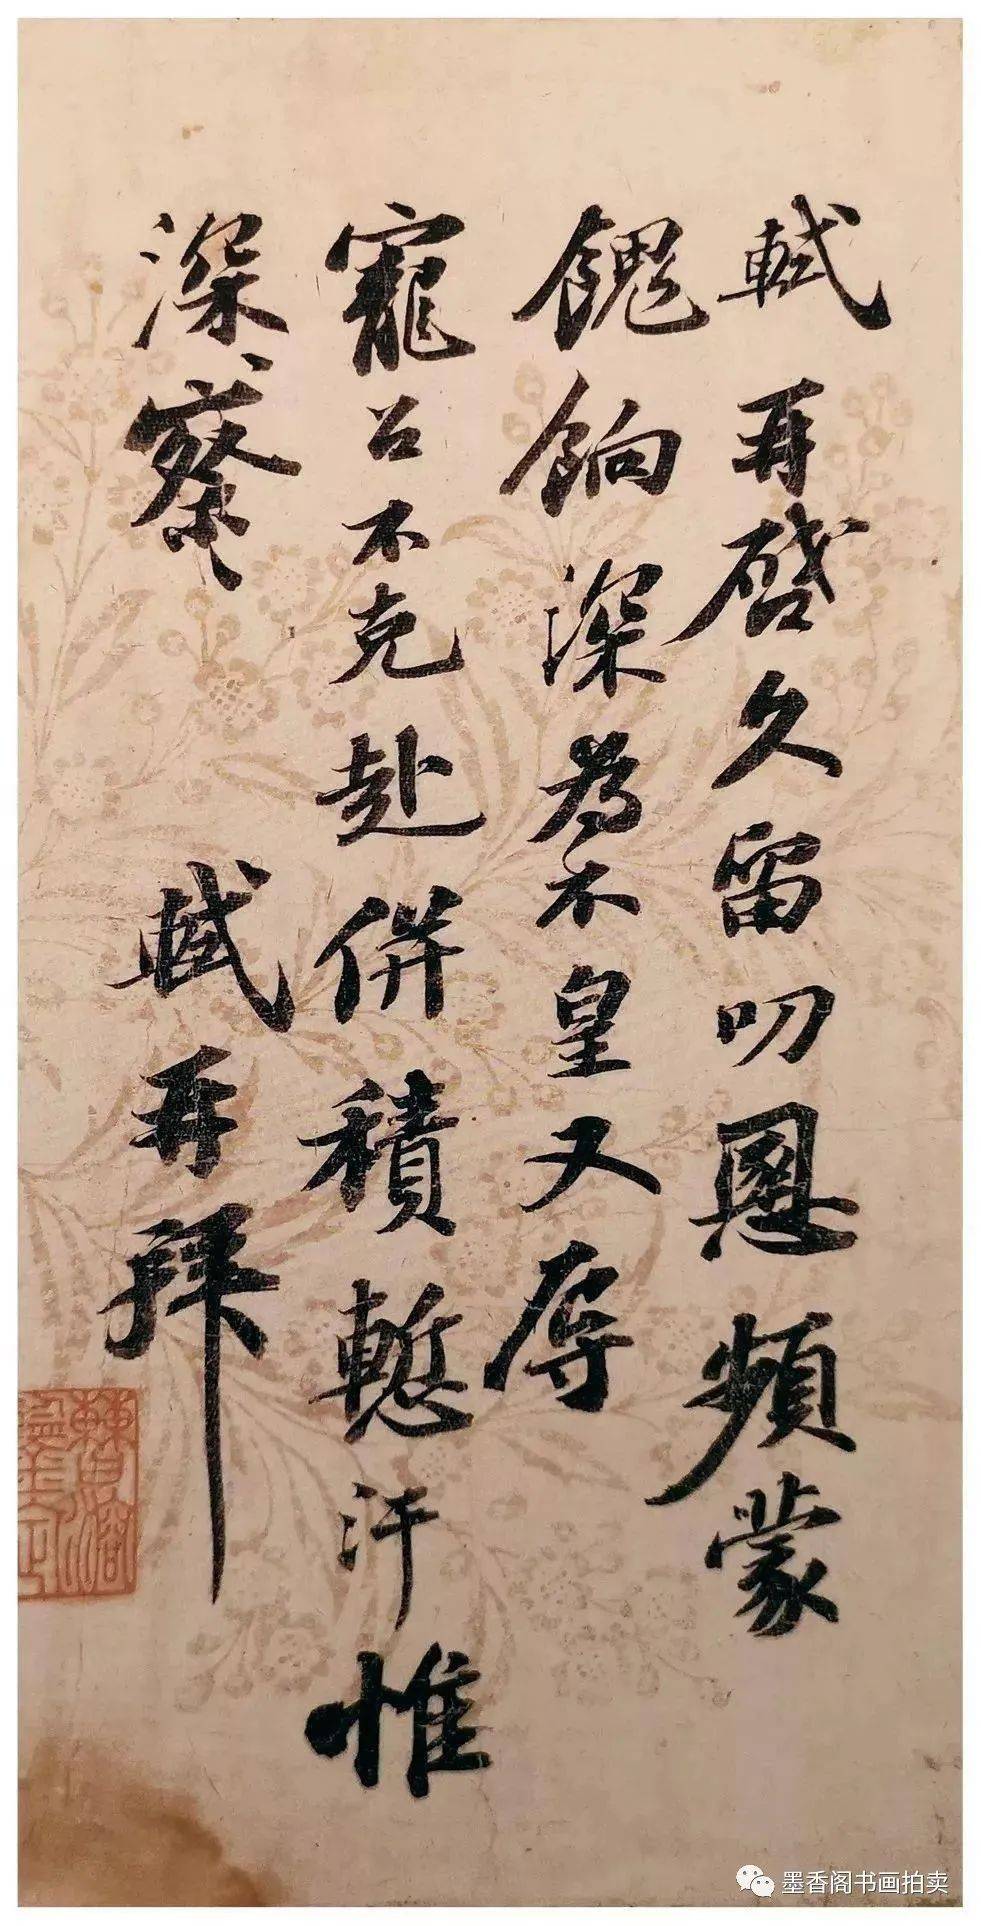 軾再啓久留叨恩頻蒙
餽餉深為不皇又辱
寵召不克赴併積慙汗惟
深察 軾再拜
墨香阁书画拍卖